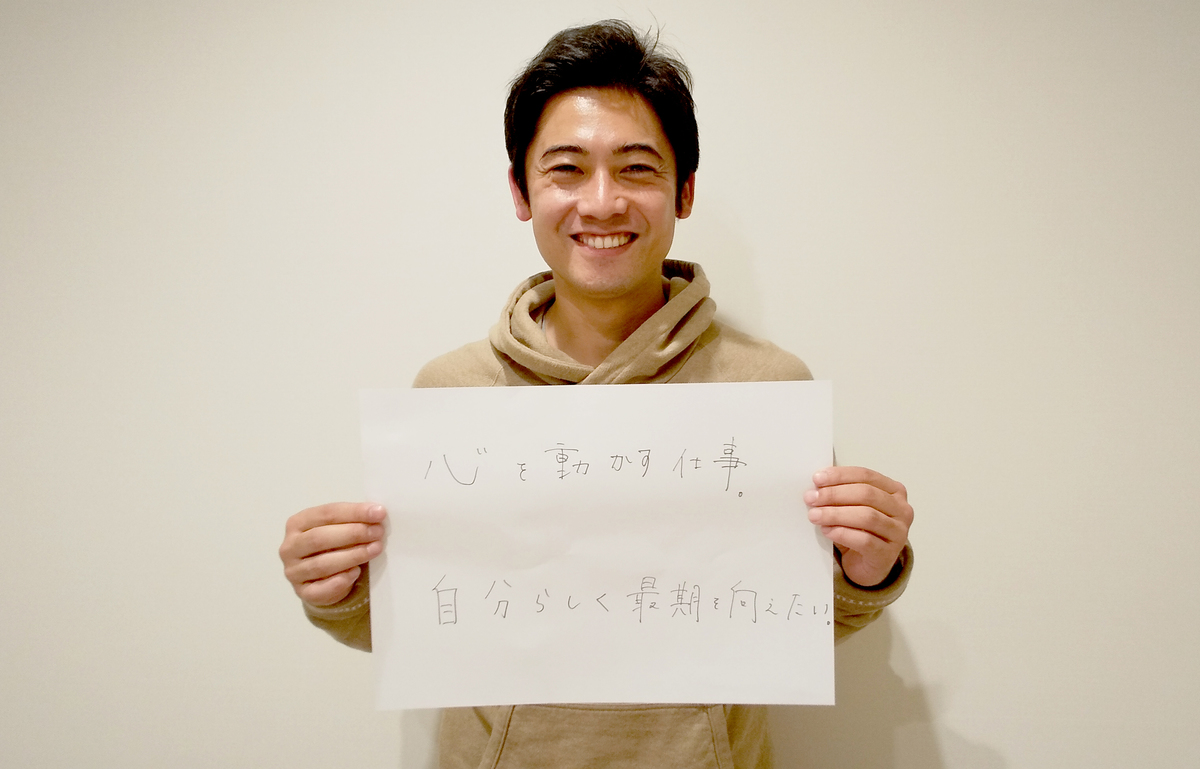 心を動かす仕事.
自分らしく最期を向えたい.